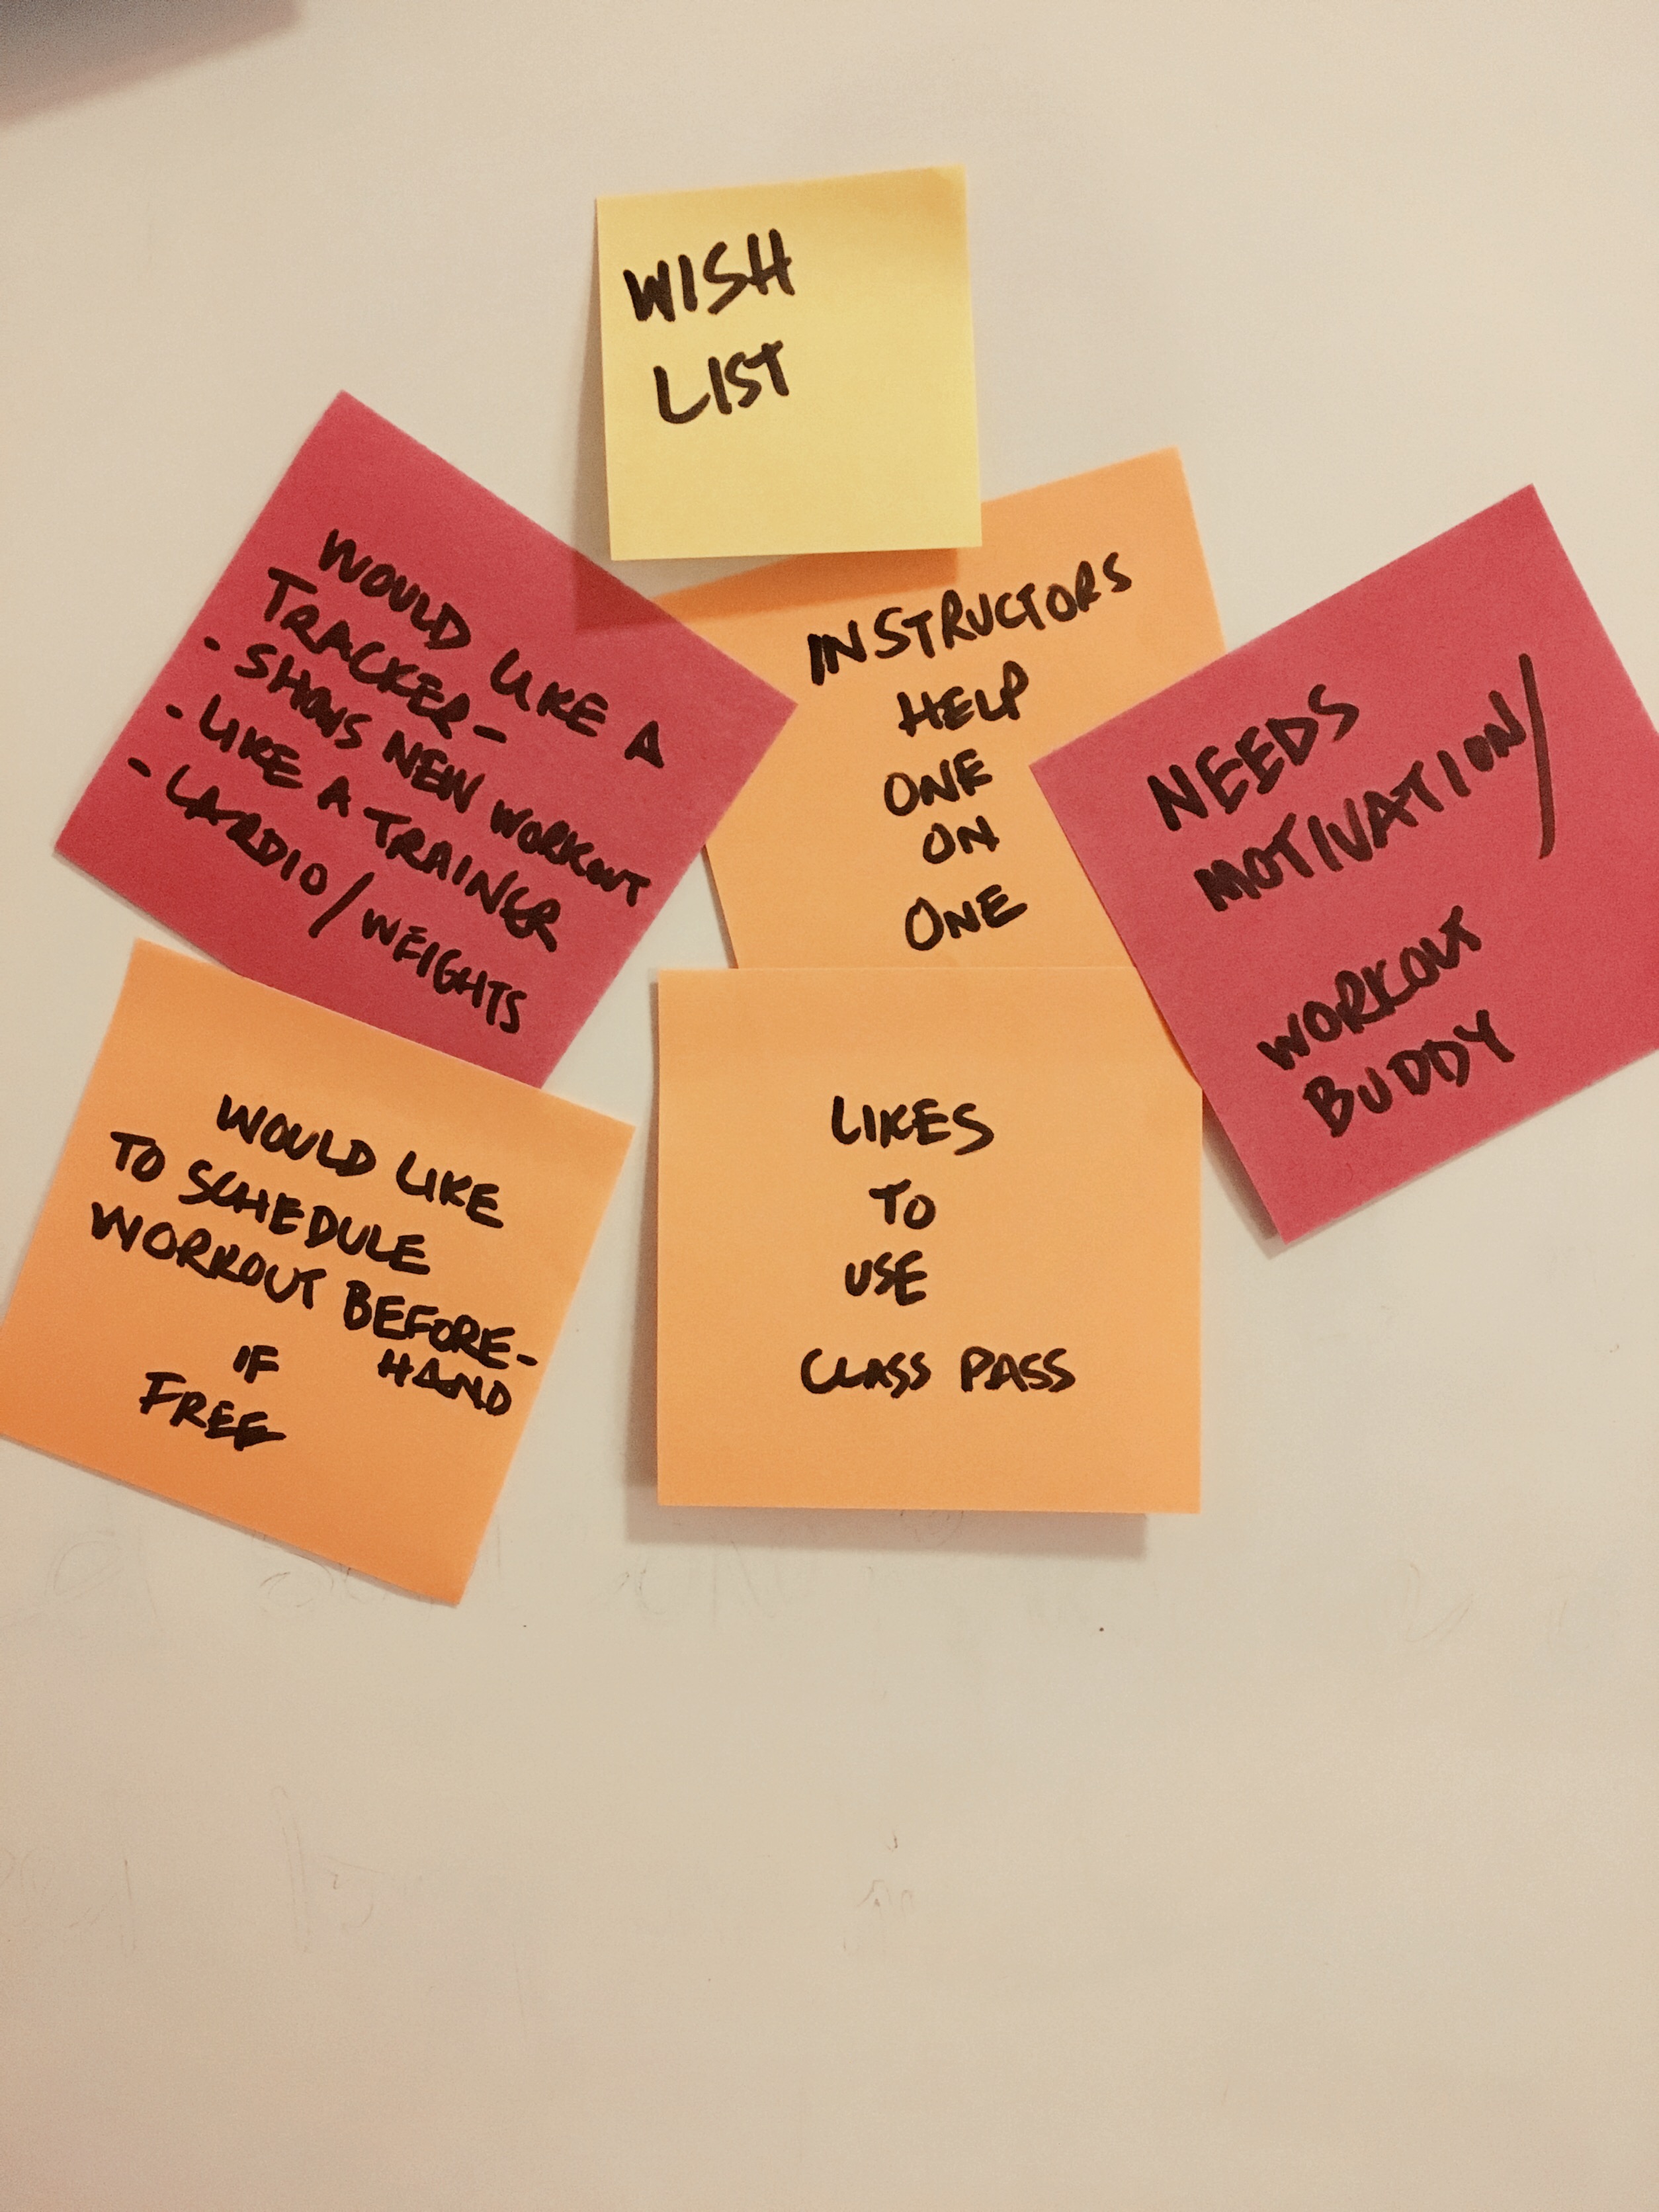 WISH
LIST
WOULD LIKE A
TRACKER-
- SHOWS NEW WORKOUT
- LIKE A TRAINER
- CARDIO/WEIGHTS
INSTRUCTORS
HELP
ONE
ON
ONE
NEEDS
MOTIVATION/
WORKOUT
BUDDY
WOULD LIKE
TO SCHEDULE
WORKOUT BEFORE-
HAND
IF
FREE
LIKES
TO
USE
CLASS PASS